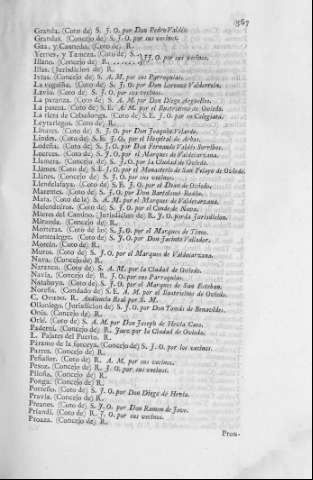 367
Granda. (Coto de) S. J. O. por Don Pedro Valdés.
Grandas. (Concejo de) S. J. O. por sus vecinos.
Gúa, y Caunedo. (Coto de) R.
Yernes, y Tameza. (Coto de) S. J. O. por sus vecinos.
Illano. (Concejo de) R.
Illas. (Jurisdicion de) R.
Ivias. (Concejo de) S. A. M. por sus Parroquias.
La (Coto de) S. J. O. por Don Lorenzo
Lavio. (Coto de) S. J. O. por sus vecinos.
La paranza. (Coto de) S. A. M. por Don Diego Arguelles.
La pasera. (Coto de) S. A. M. por el Ilustrisimo de Oviedo.
La riera de Cobadonga. (Coto de) S. E. J. O. por su Colegiata.
Leytariegos. (Coto de) R.
Linares. (Coto de) S. J. O. por Don Joaquin Velarde.
Lindes. (Coto de) S. E. J. O. por el Hospital de Arbas.
Lodeña. (Coto de) S. J. O. por Don Fernando Valdés Sorribas.
Loureses. (Coto de) S. J. O. por el Marques de Valdecarzana.
Llamera. (Concejo de) S. J. O. por la Ciudad de Oviedo.
Llames. (Coto de) S. E. J. O. por el Monasterio de San Pelayo de Oviedo.
Llanes. (Concejo de) S. J. O. por sus vecinos.
Llendelafaya. (Coto de) S. E. J. O. por el Dean de Oviedo.
Marentes. (Coto de) S. J. O. por Don Bartolomé
Mata. (Coto de la) S. A. M. por el Marques de Valdecarzana.
Melendreros. (Coto de) S. J. O. por el Conde de Nava.
Mieres del Camino. (Jurisdicion de) R. J. O. por la Jurisdicion.
Miranda. (Concejo de) R.
Monteras. (Coto de las) S. J. O. por el Marques de
Montealegre. (Coto de) S. J. O. por Don Jacinto Vallador.
Morcin. (Coto de) R.
Muros. (Coto de) S. J. O. por el Marques de Valdecarzana.
Nava. (Concejo de) R.
Naranco. (Coto de) S. A. M. por la Ciudad de Oviedo.
Navia. (Concejo de) R. J. O. por sus Parroquias.
Natahoyo. (Coto de) S. J. O. por el Marques de San Esteban.
Noreña. (Condado de) S. E. A. M. por el Ilustrisimo de Oviedo.
C. Oviedo. R. Audiencia Real por S. M.
Olloniego. (Jurisdicion de) S. J. O. por Don Tomás de Benavides.
Onís. (Concejo de) R.
Orlé. (Coto de) S. A. M. por Don Joseph de Hevia Caso.
Paderni. (Concejo de) R. Juez por la Ciudad de Oviedo.
L. Pajares del Puerto. R.
Páramo de la focerya. (Concejo de) S. J. O. por los vecinos.
Parres. (Concejo de) R.
Peñaflor. (Coto de) R. A. M. por sus vecinos.
Pesoz. (Concejo de) R. J. O. por sus vecinos.
Piloña. (Concejo de) R.
Ponga. (Concejo de) R.
Porreño. (Coto de) S. J. O. por Don Diego de Hevia.
Pravia. (Concejo de) R.
Preanes. (Coto de) S. J. O. por Don Ramon de Jove.
Priandi. (Coto de) R. J. O. por sus vecinos.
Proaza. (Concejo de) R.
Prou-